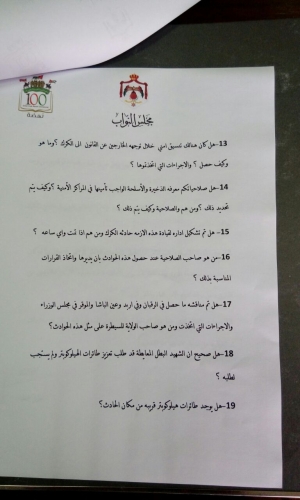 100
مجلس النواب
13-هل كان هنالك تنسيق امني خلال توجه الخارجين عن القانون الى الكرك ؟وما هو
وكيف حصل ؟ والاجراءات التي اتخذتموها ؟
14-هل صلاحياتكم معرفه الذخيرة والأسلحة الواجب تأمينها في المراكز الأمنية ؟وكيف يتم
تحديد ذلك ؟ومن هم والصلاحية وكيف يتم ذلك ؟
15- هل تم تشكيل اداره لقيادة هذه الازمه حادثه الكرك ومن هم اذا تمت واي ساعه ؟
16-من هو صاحب الصلاحية عند حصول هذه الحوادث بان يديرها واتخاذ القرارات
المناسبة بذلك ؟
17-هل تم مناقشه ما حصل في الرقبان وفي اربد وعين الباشا والموقر في مجلس الوزراء
والاجراءات التي اتخذت ومن هو صاحب الولاية للسيطرة على مثل هذه الحوادث؟
18-هل صحيح ان الشهيد البطل المعايطة قد طلب تعزيز طائرات الهيلوكوبتر ولم يستجب
لطلبه ؟
19-هل يوجد طائرات هيلوكوبتر قريبه من مكان الحادث؟